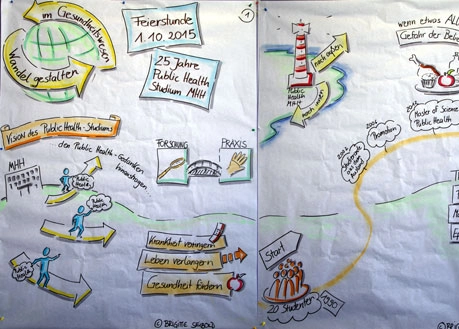 im Gesundheitswesen
Wandel gestalten
Feierstunde
1.10.2015
25 Jahre
Public Health
Studium
MHH
1
Vision des Public Health-Studiums
den Public Health-Gedanken
hinaustragen
MHH
Public Health
Public Health
Public Health
FORSCHUNG
PRAXIS
Krankheit verringern
Leben verlängern
Gesundheit fördern
© BRIGITTE SEIBOLD
nach außen
nach innen
Public
Health
MHH
wenn etwas ALL
Gefahr der Bel
Master of Science
Public Health
Promotion
Start
20 Studenten
1990
© BRIGI